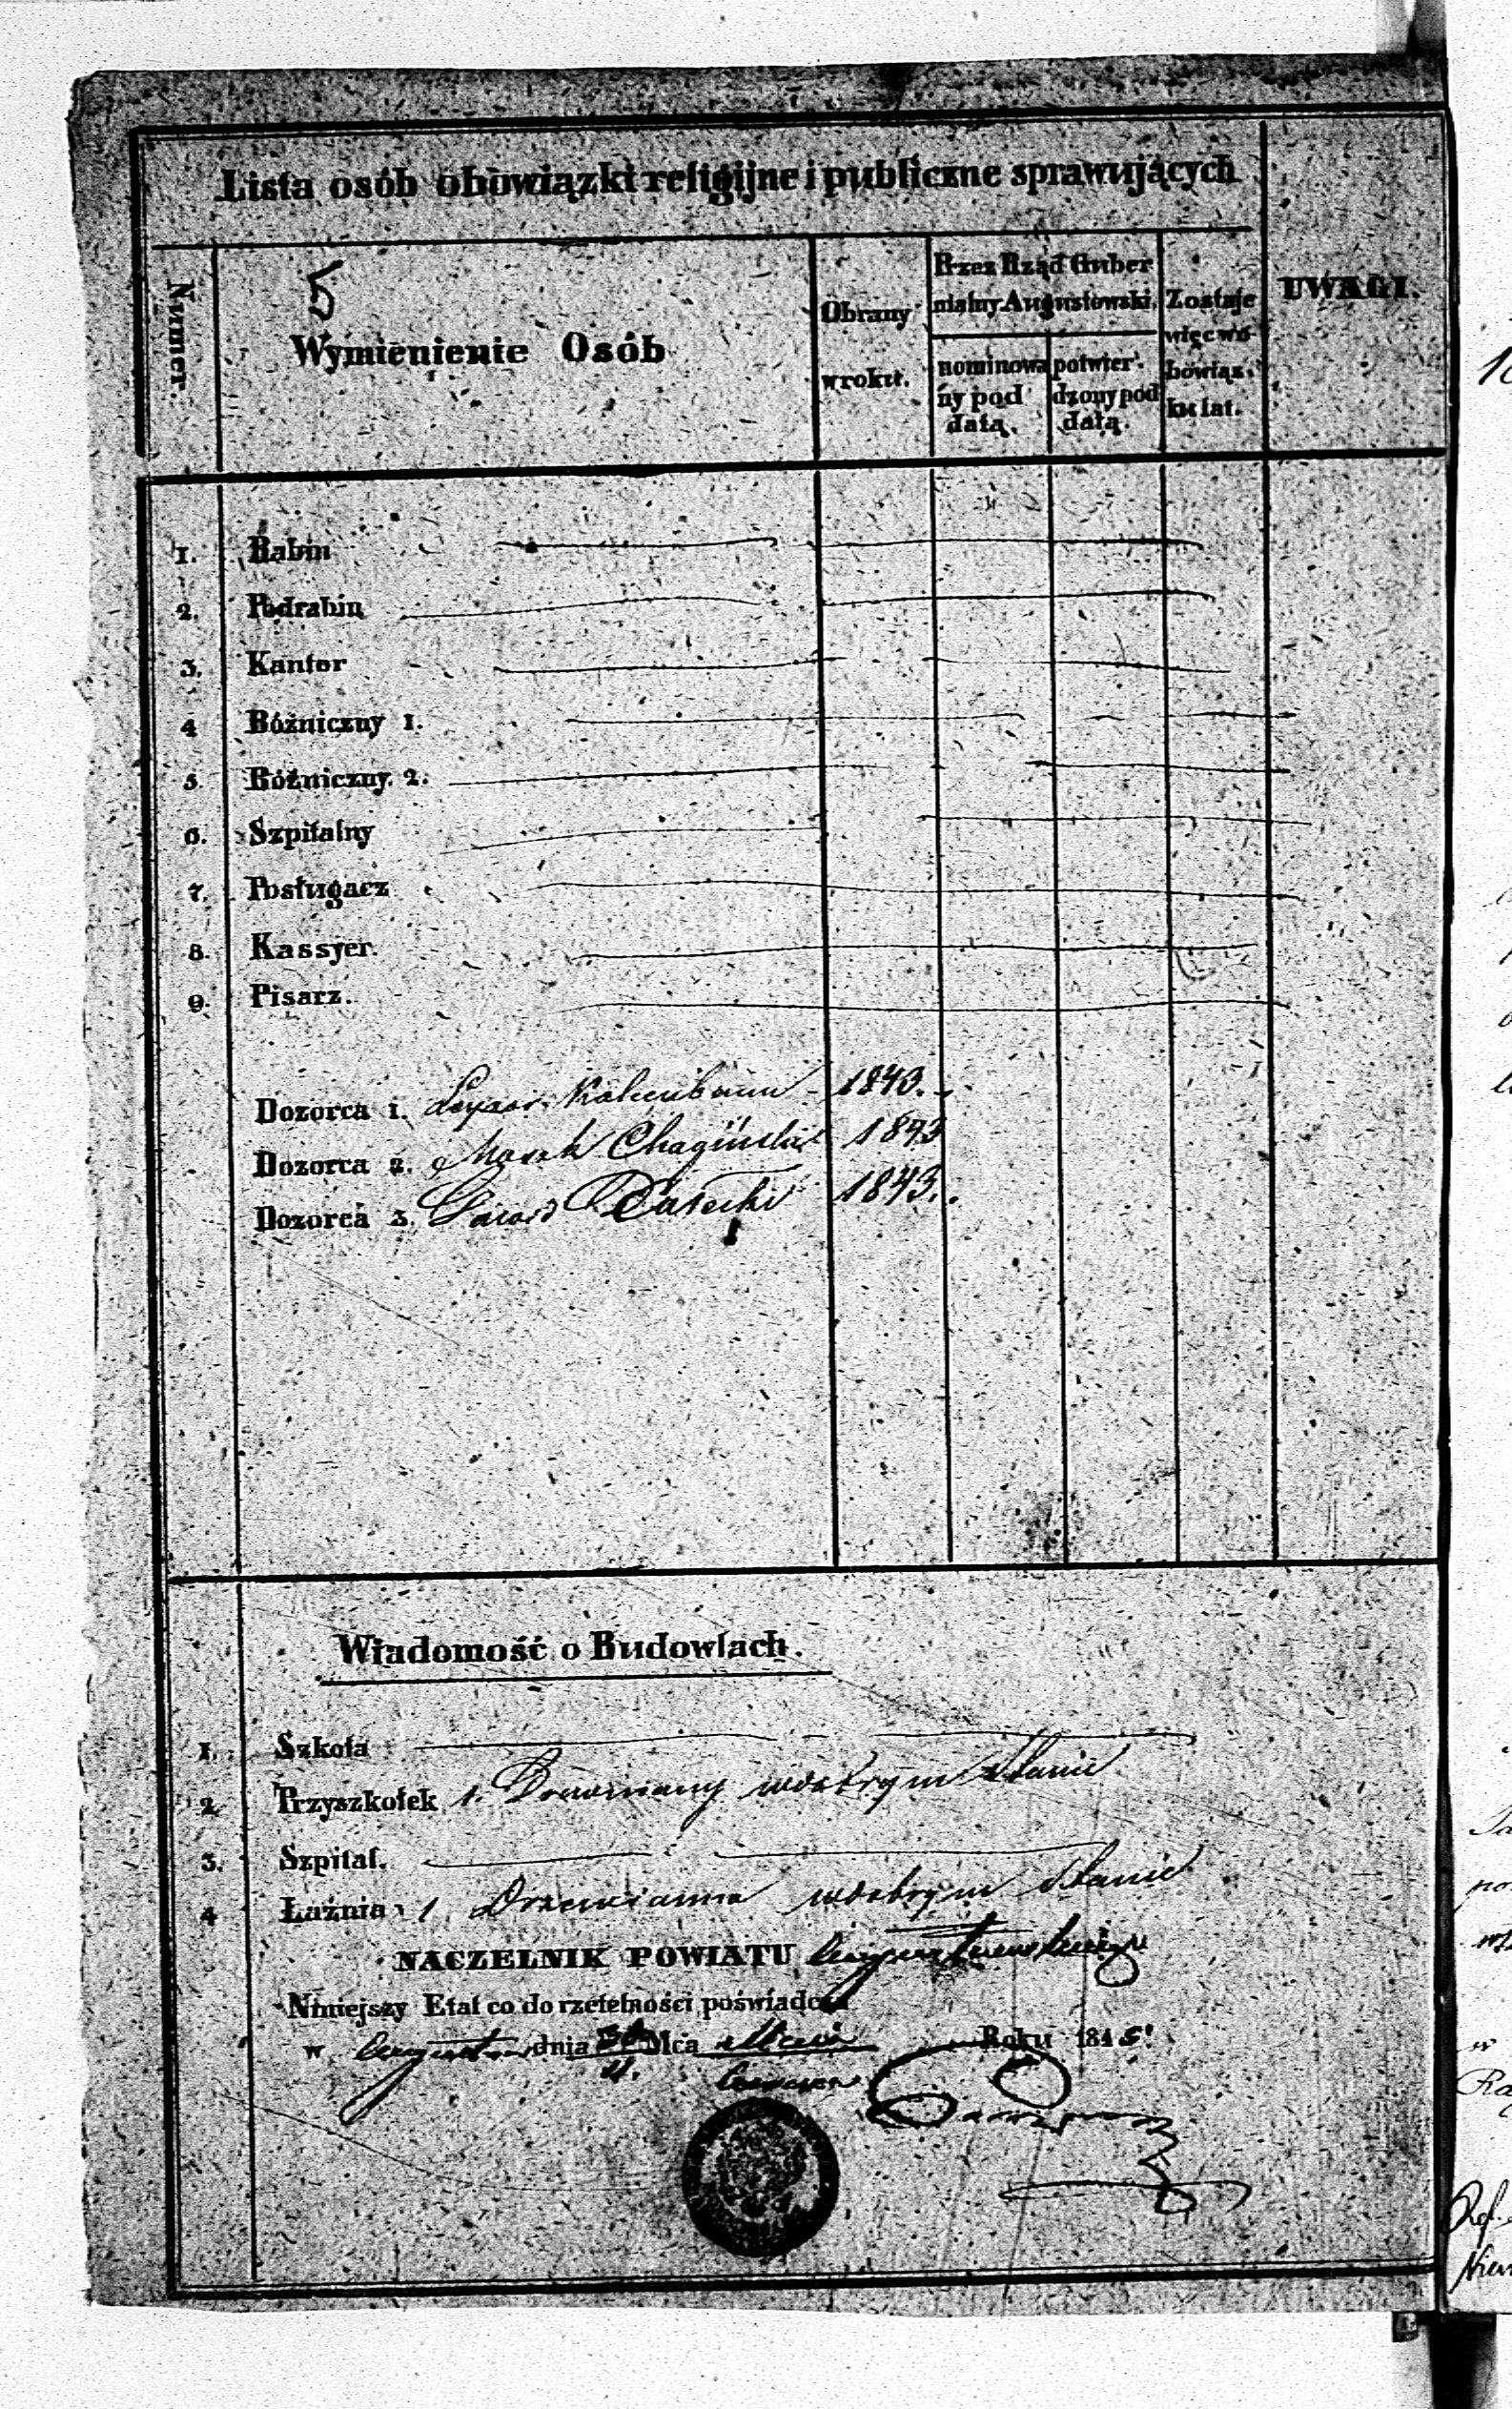 Lista osób obowiązki religijne i publiczne sprawujących
Numer.
5
Wymienienie Osób
Obrany
w roku.
Przez Rząd Guber
nialny Augustowski.
nominowa
ny pod
datą.
potwier
dzony pod
datą.
Zostaje
więc w o
bowiąz.
ku lat.
UWAGI.
1. Rabin
2. Podrabin
3. Kantor
4 Bóźniczny 1.
5. Bóżniczny. 2.
6. Szpitalny
7. Posługacz
8. Kassyer.
9. Pisarz.
Dozorca 1. 1843.
Dozorca 2. 1843
Dozorca 3. 1843.
Wiadomość o Budowlach.
1. Szkoła
2. Przyszkołek 1. Drewniany w dobrym Stanie
3. Szpital.
4 Łaźnia 1 Drewnianna w dobrym Stanie
NACZELNIK POWIATU Augustowskiego
Niniejszy Etat co do rzetelności poświadcza
w dnia Mca Roku 1845.